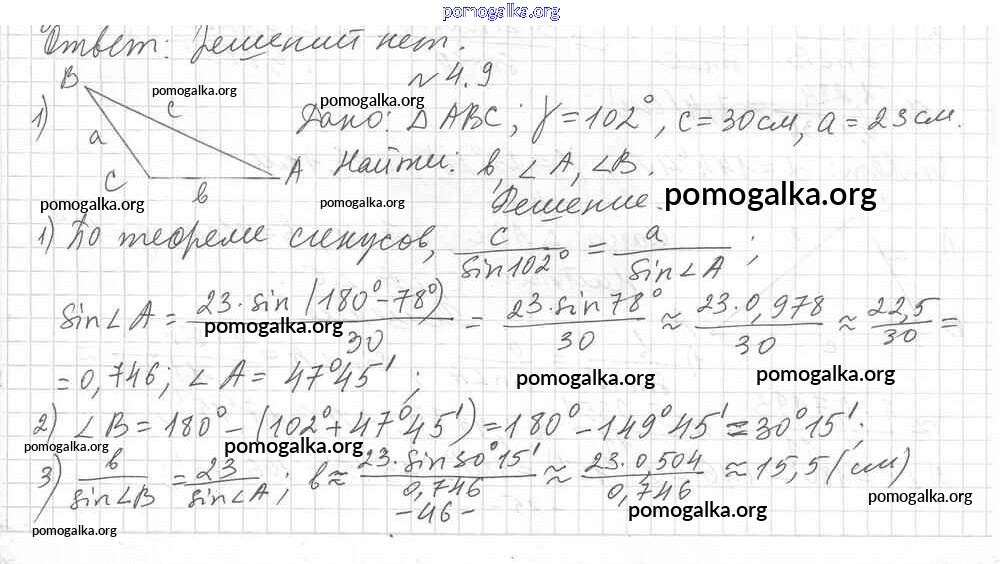 pomogalka.org
Ответ: решений нет.
№ 4.9
1) B a c C b A
pomogalka.org
pomogalka.org
Дано: Δ ABC; γ = 102°, c = 30 см, a = 23 см.
Найти: b, ∠A, ∠B.
pomogalka.org
pomogalka.org
pomogalka.org
Решение.
1) По теореме синусов, c/sin102° = a/sin∠A ;
sin∠A = 23·sin(180°−78°)/30 = 23·sin78°/30 ≈ 23·0,978/30 ≈ 22,5/30 =
pomogalka.org
= 0,746; ∠A = 47°45′ ;
pomogalka.org
pomogalka.org
2) ∠B = 180° − (102° + 47°45′) = 180° − 149°45′ = 30°15′ ;
pomogalka.org
pomogalka.org
3) b/sin∠B = 23/sin∠A ; b ≈ 23·sin30°15′/0,746 ≈ 23·0,504/0,746 ≈ 15,5 (см)
pomogalka.org
pomogalka.org
-46-
pomogalka.org